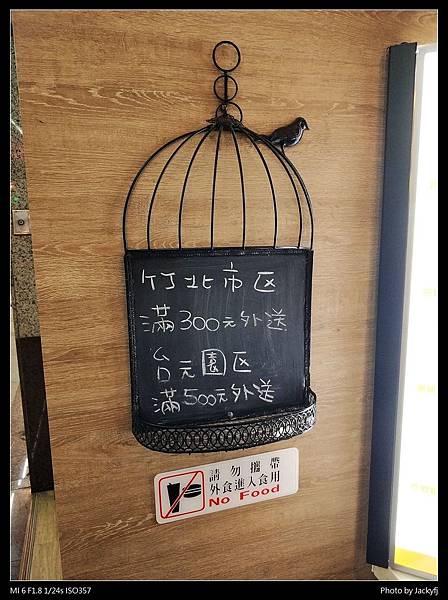 竹北市区
滿300元外送
台元園区
滿500元外送
請勿攜帶
外食進入食用
No Food
MI 6 F1.8 1/24s ISO357
Photo by Jackyfj